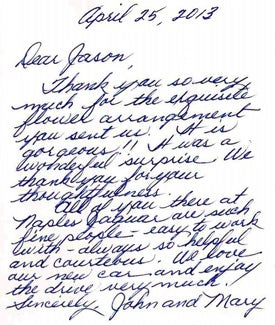 April 25, 2013
Dear Jason,
Thank you so very
much for the exquisite
flower arrangement
you sent us. It is
gorgeous!! It was a
wonderful surprise. We
thank you for your
thoughtfulness.
All of you there at
Naples Jaguar are such
fine people - easy to work
with - always so helpful
and courteous. We love
our new car and enjoy
the drive very much!
Sincerely, John and Mary